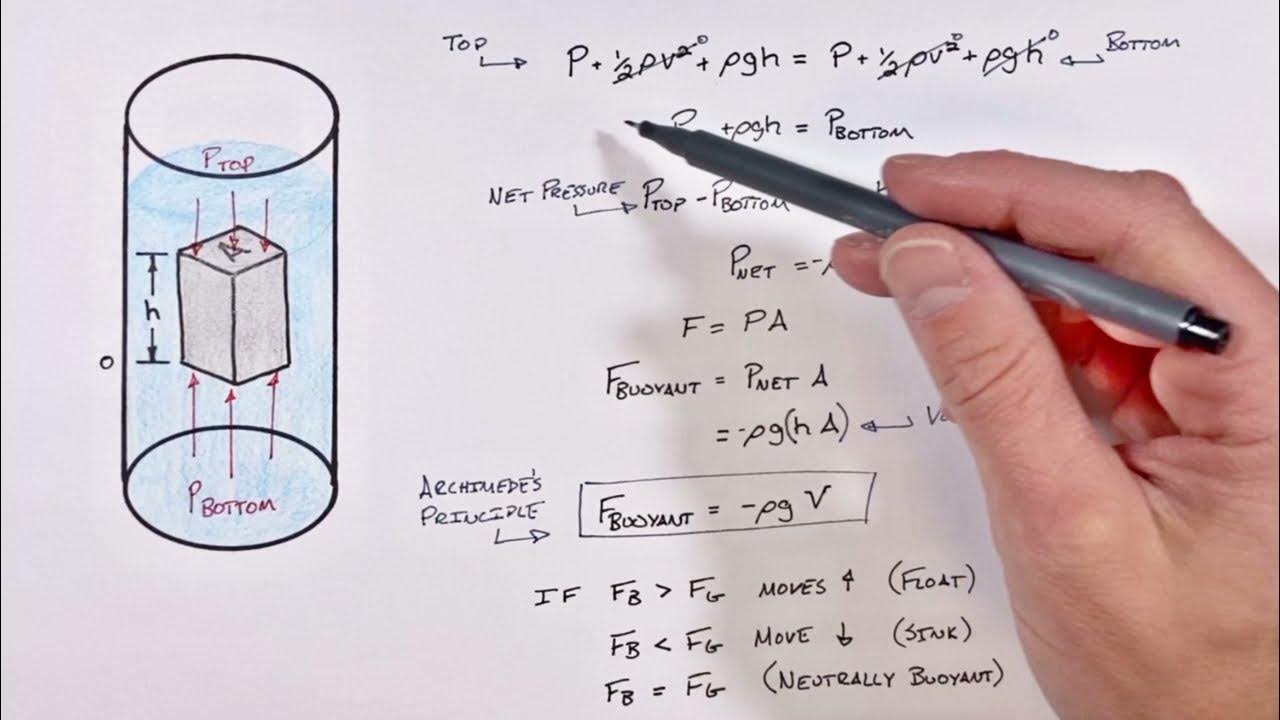 P TOP
A
h
O
P BOTTOM
TOP
P + ½ρv² ⁰ + ρgh = P + ½ρv² ⁰ + ρgh ⁰
BOTTOM
P +ρgh = P BOTTOM
NET PRESSURE P TOP - P BOTTOM
P NET = -
F = PA
F BUOYANT = P NET A
= -ρg(h A)
ARCHIMEDE'S
PRINCIPLE
F BUOYANT = -ρg V
IF F B > F G MOVES ↑ (FLOAT)
F B < F G MOVE ↓ (SINK)
F B = F G (NEUTRALLY BUOYANT)